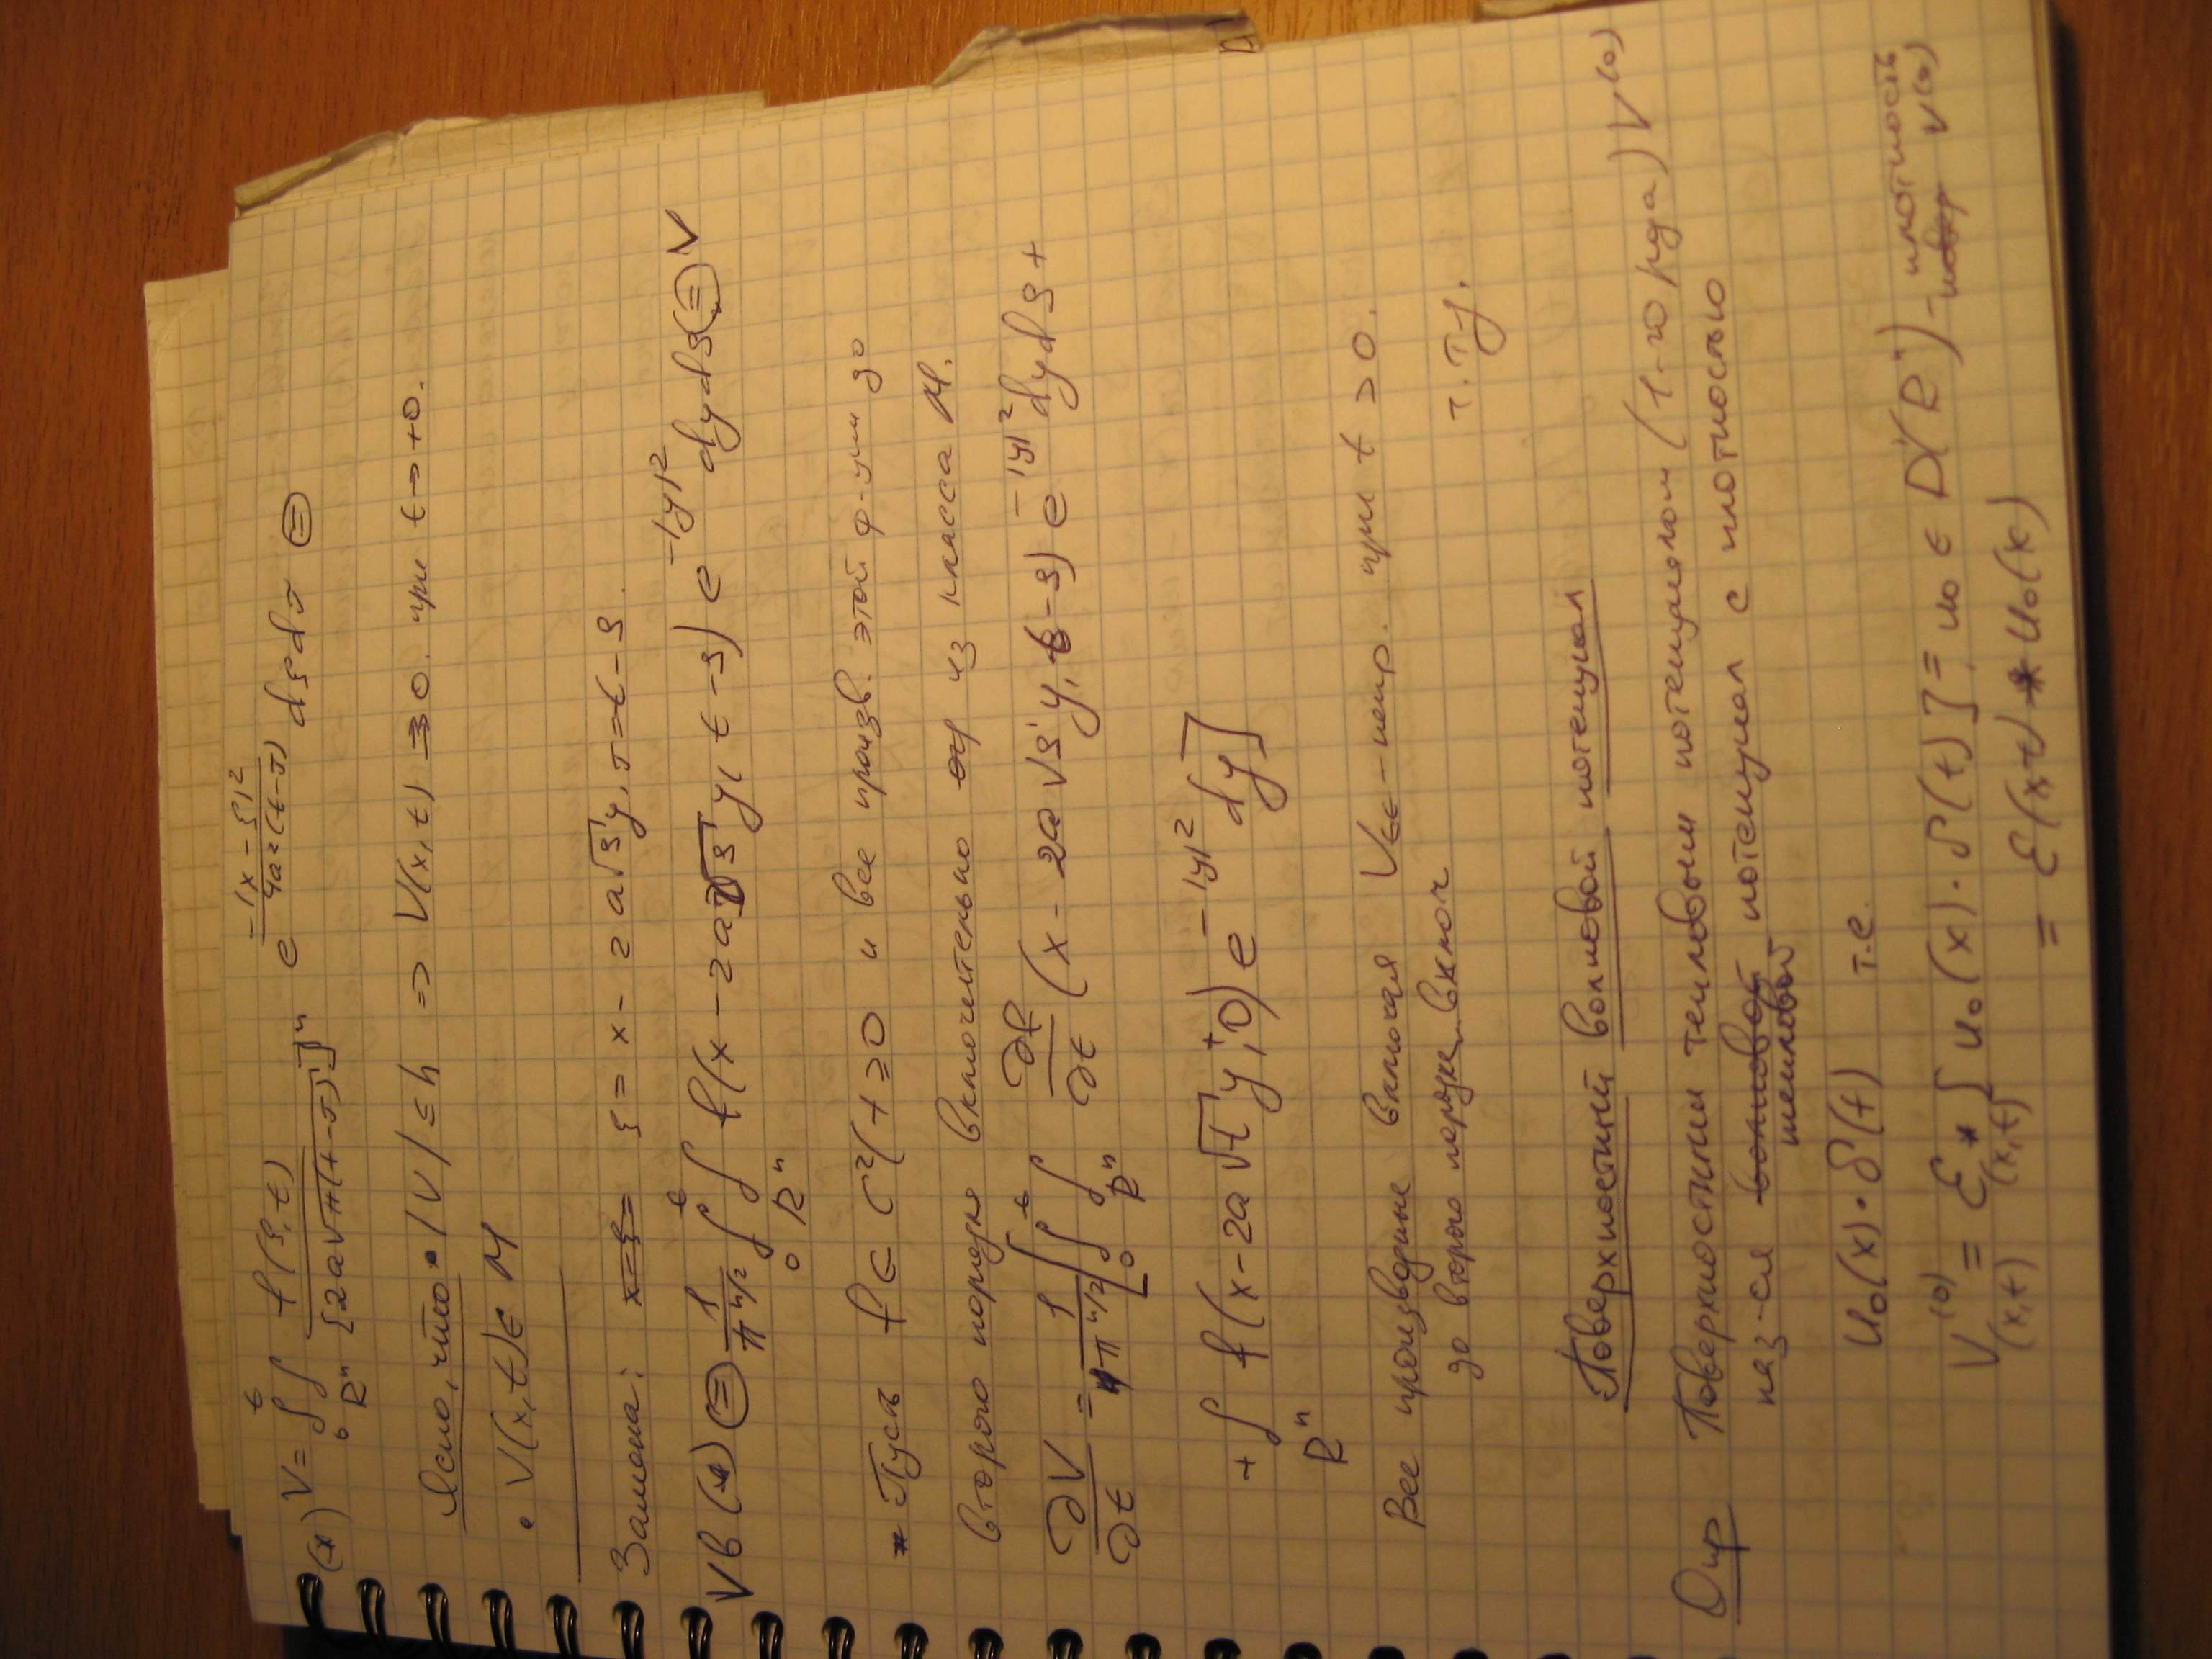 (*) V = ∫₀ᵗ ∫_{Rⁿ} f(ξ,t) / [2a√π(t-τ)]ⁿ e^{-|x-ξ|²/4a²(t-τ)} dξdτ ⊜
Ясно, что • |V| ≤ h ⇒ V(x,t) ⇉ 0. при t→+0.
• V(x,t) ∈ M
Замена: ξ = x - 2a√s y, τ = t - s.
V в (*) ⊜ 1/π^{n/2} ∫₀ᵗ ∫_{Rⁿ} f(x - 2a√s y, t - s) e^{-|y|²} dyds ⊜ V
* Пусть f ∈ C²(t ≥ 0 и все произв. этой ф-ции до
второго порядка включительно из класса M.
∂V/∂t = 1/π^{n/2} [∫₀ᵗ ∫_{Rⁿ} ∂f/∂t (x - 2a√s y, t - s) e^{-|y|²} dyds +
+ ∫_{Rⁿ} f(x - 2a√t y, +0) e^{-|y|²} dy]
Все производные включая V_tt - непр. при t > 0.
до второго порядк. включ т.т.у.
Поверхностный волновой потенциал
Опр Поверхностным тепловым потенциалом (1-го рода) V⁽⁰⁾
наз-ся тепловой потенциал с плотностью
u₀(x)·δ(t) т.е.
V⁽⁰⁾(x,t) = ℰ * (x,t) [u₀(x)·δ(t)] = u₀ ∈ D'(Rⁿ) - плотность V⁽⁰⁾
= ℰ(x,t) * u₀(x)